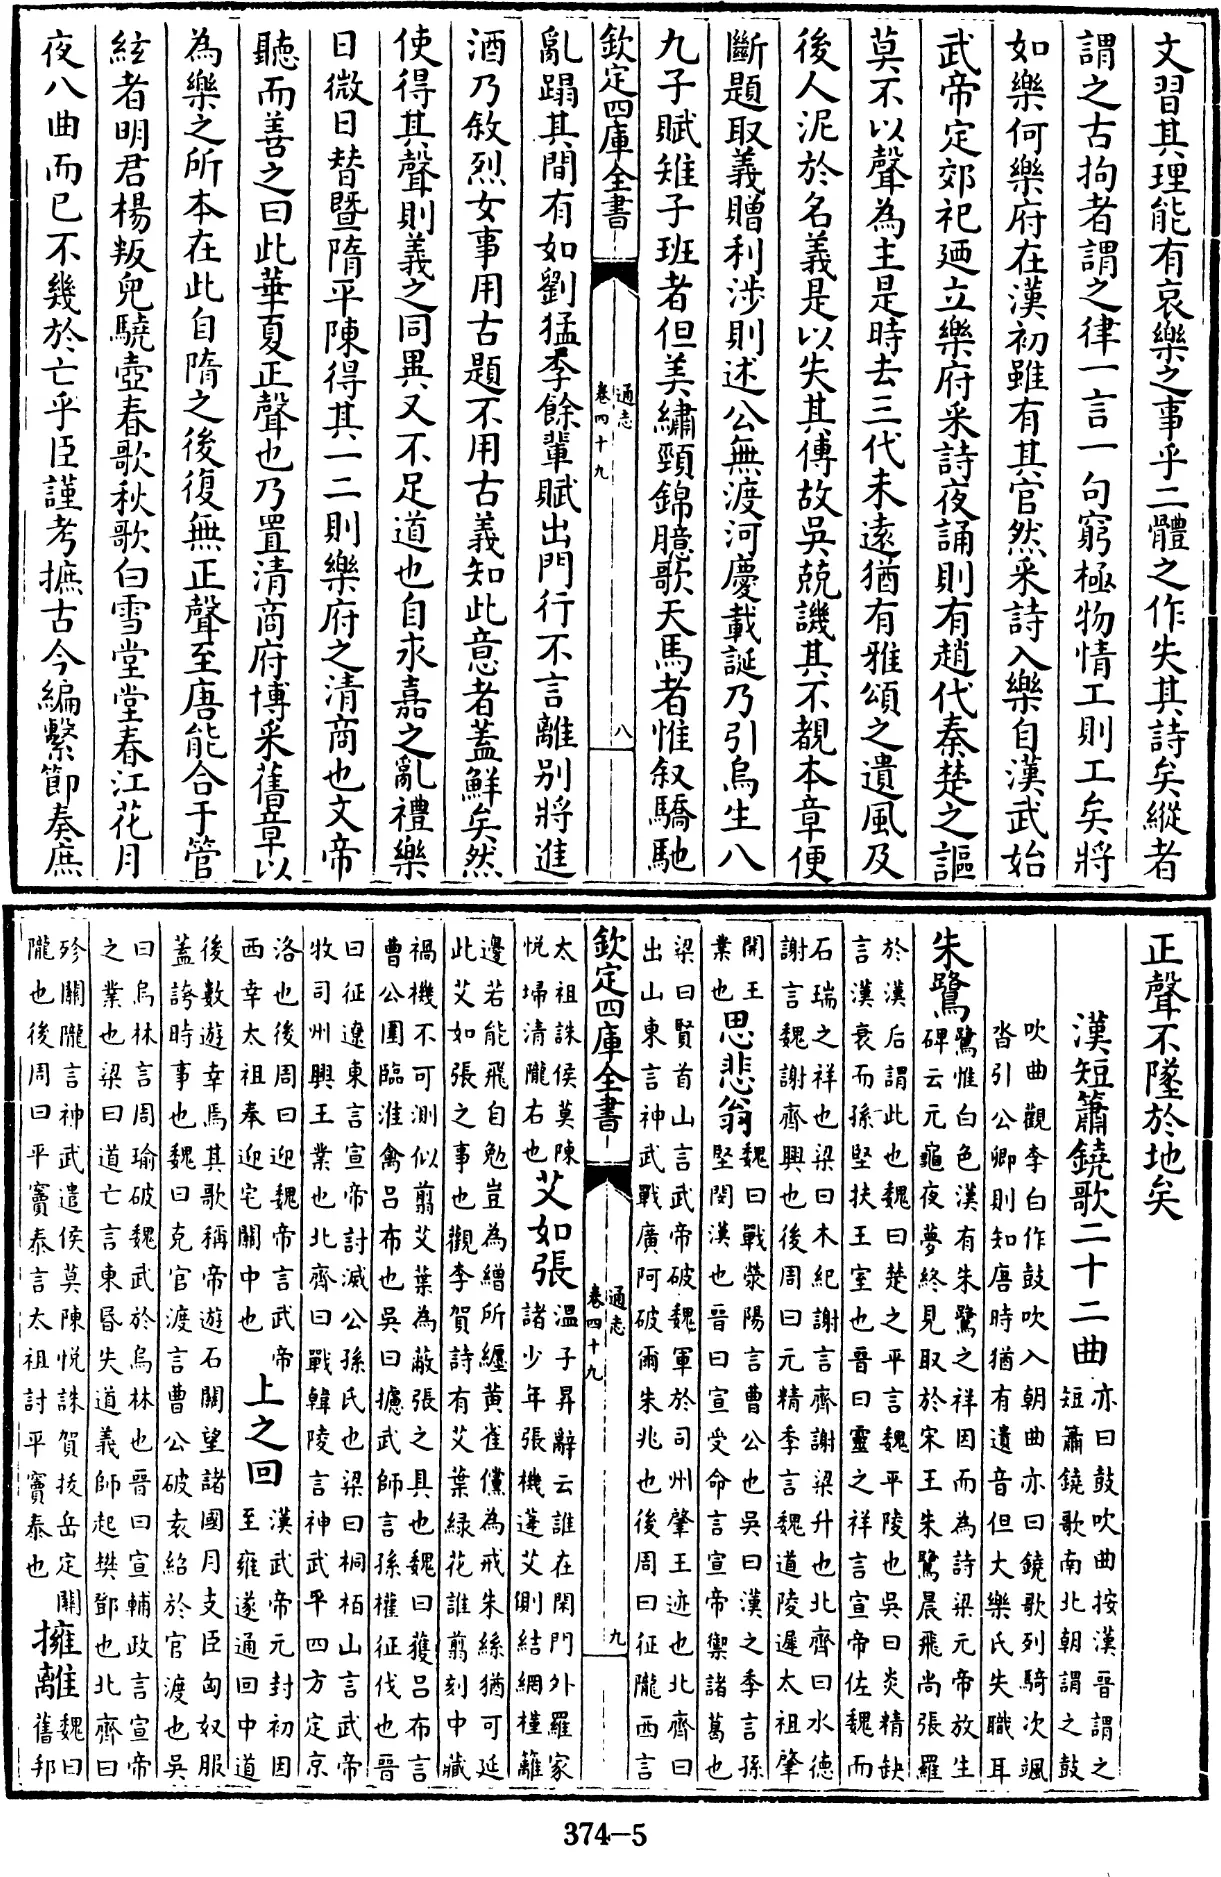 文習其理能有哀樂之事乎二體之作失其詩矣縱者
謂之古拘者謂之律一言一句窮極物情工則工矣將
如樂何樂府在漢初雖有其官然采詩入樂自漢武始
武帝定郊祀廼立樂府采詩夜誦則有趙代秦楚之謳
莫不以聲為主是時去三代未遠猶有雅頌之遺風及
後人泥於名義是以失其傳故吳兢譏其不覩本章便
斷題取義贈利涉則述公無渡河慶載誕乃引烏生八
九子賦雉子班者但美繡頸錦臆歌天馬者惟叙驕馳
欽定四庫全書
通志
卷四十九
八
亂蹋其間有如劉猛李餘輩賦出門行不言離别將進
酒乃敘烈女事用古題不用古義知此意者蓋鮮矣然
使得其聲則義之同異又不足道也自永嘉之亂禮樂
日微日替暨隋平陳得其一二則樂府之清商也文帝
聽而善之曰此華夏正聲也乃置清商府博采舊章以
為樂之所本在此自隋之後復無正聲至唐能合于管
絃者明君楊叛兒驍壺春歌秋歌白雪堂堂春江花月
夜八曲而已不幾於亡乎臣謹考摭古今編繫節奏庶
正聲不墜於地矣
漢短簫鐃歌二十二曲
亦曰鼓吹曲按漢晉謂之
短簫鐃歌南北朝謂之鼓
吹曲觀李白作鼓吹入朝曲亦曰鐃歌列騎次颯
沓引公卿則知唐時猶有遺音但大樂氏失職耳
朱鷺
鷺惟白色漢有朱鷺之祥因而為詩梁元帝放生
碑云元龜夜夢終見取於宋王朱鷺晨飛尚張羅
於漢后謂此也魏曰楚之平言魏平陵也吳曰炎精缺
言漢衰而孫堅扶王室也晉曰靈之祥言宣帝佐魏而
石瑞之祥也梁曰木紀謝言齊謝梁升也北齊曰水德
謝言魏謝齊興也後周曰元精季言魏道陵遲太祖肇
開王
業也
思悲翁
魏曰戰滎陽言曹公也吳曰漢之季言孫
堅閔漢也晉曰宣受命言宣帝禦諸葛也
梁曰賢首山言武帝破魏軍於司州肇王迹也北齊曰
出山東言神武戰廣阿破爾朱兆也後周曰征隴西言
欽定四庫全書
通志
卷四十九
九
太祖誅侯莫陳
悅埽清隴右也
艾如張
溫子昇辭云誰在閑門外羅家
諸少年張機蓬艾側結網槿籬
邊若能飛自勉豈為繒所纏黄雀儻為戒朱絲猶可延
此艾如張之事也觀李賀詩有艾葉緑花誰翦刻中藏
禍機不可測似翦艾葉為蔽張之具也魏曰獲吕布言
曹公圍臨淮禽吕布也吳曰攄武師言孫權征伐也晉
曰征遼東言宣帝討滅公孫氏也梁曰桐栢山言武帝
牧司州興王業也北齊曰戰韓陵言神武平四方定京
洛也後周曰迎魏帝言武帝
西幸太祖奉迎宅關中也
上之回
漢武帝元封初因
至雍遂通回中道
後數遊幸焉其歌稱帝遊石關望諸國月支臣匈奴服
蓋誇時事也魏曰克官渡言曹公破袁紹於官渡也吳
曰烏林言周瑜破魏武於烏林也晉曰宣輔政言宣帝
之業也梁曰道亡言東昏失道義師起樊鄧也北齊曰
殄關隴言神武遣侯莫陳悅誅賀拔岳定關
隴也後周曰平竇泰言太祖討平竇泰也
擁離
魏曰
舊邦
374—5